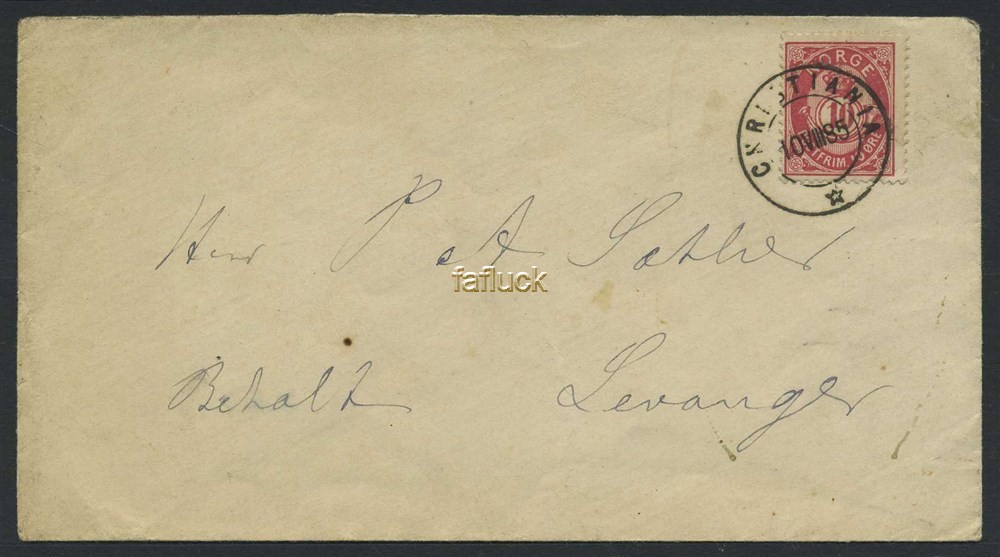 NORGE
10
FRIM. 10 ØRE
CHRISTIANIA
10 VIII 85
Herr P A Sæther
fafluck
Betalt Levanger